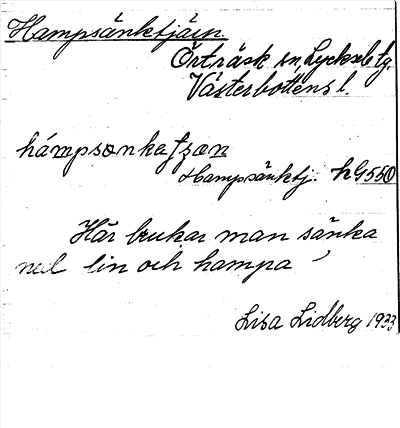 Hampsänktjärn
Örträsk sn, Lycksele tg.
Västerbottens l.
hámpsɷnkatʃzæn
Hampsänktj. hG550
Här brukar man sänka
ned lin och hampa
Lisa Lidberg 1933